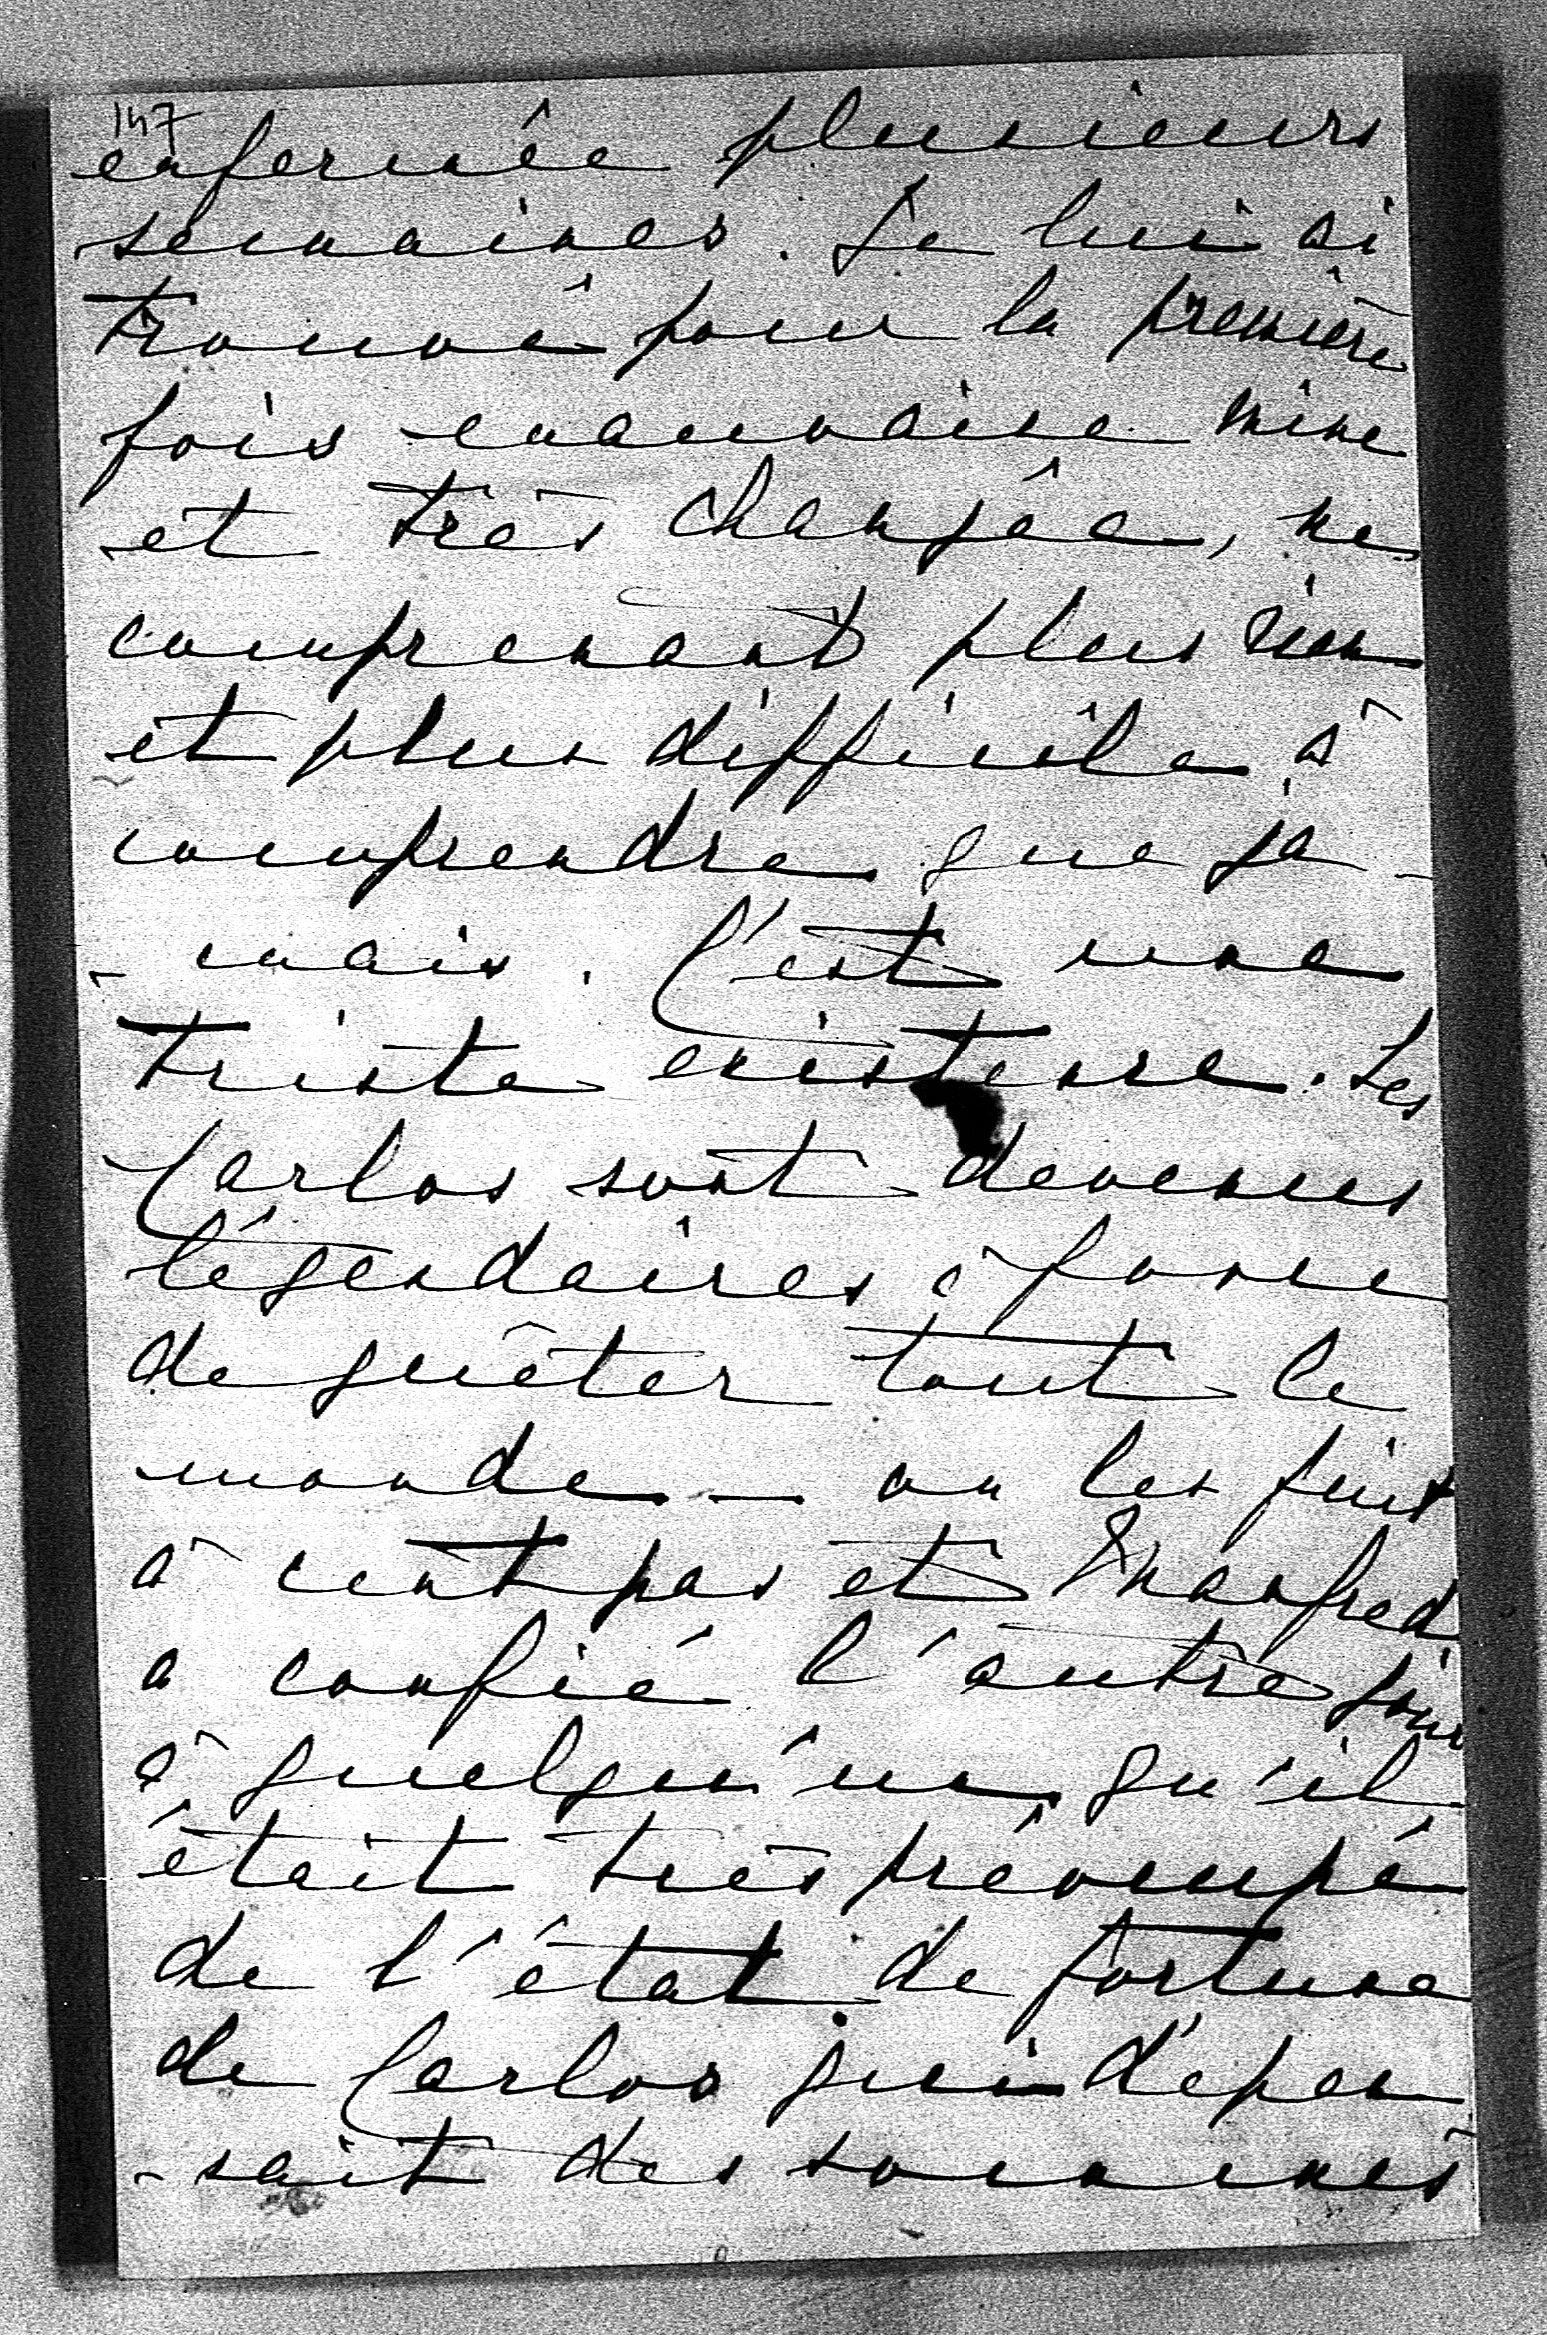 147
enfermée plusieurs
semaines. Je lui ai
trouvé pour la première
fois mauvaise mine
et très changée, ne
comprenant plus rien
et plus difficile à
comprendre que ja-
-mais. C'est une
triste existence. Les
Carlos sont devenus
légendaires à force
de quêter tout le
monde — on les fuit
à cent pas et Manfred
a confié l'autre jour
à quelqu'un qu'il
était très préoccupé
de l'état de fortune
de Carlos qui dépen
-sait des sommes